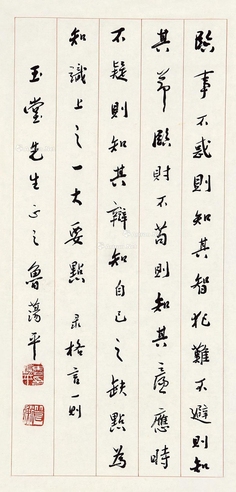 臨事不惑則知其智犯難不避則知
其節臨財不苟則知其廉應時
不疑則知其辯知自己之缺點為
知識上之一大要點 录格言一則
玉堂先生正之 魯蕩平